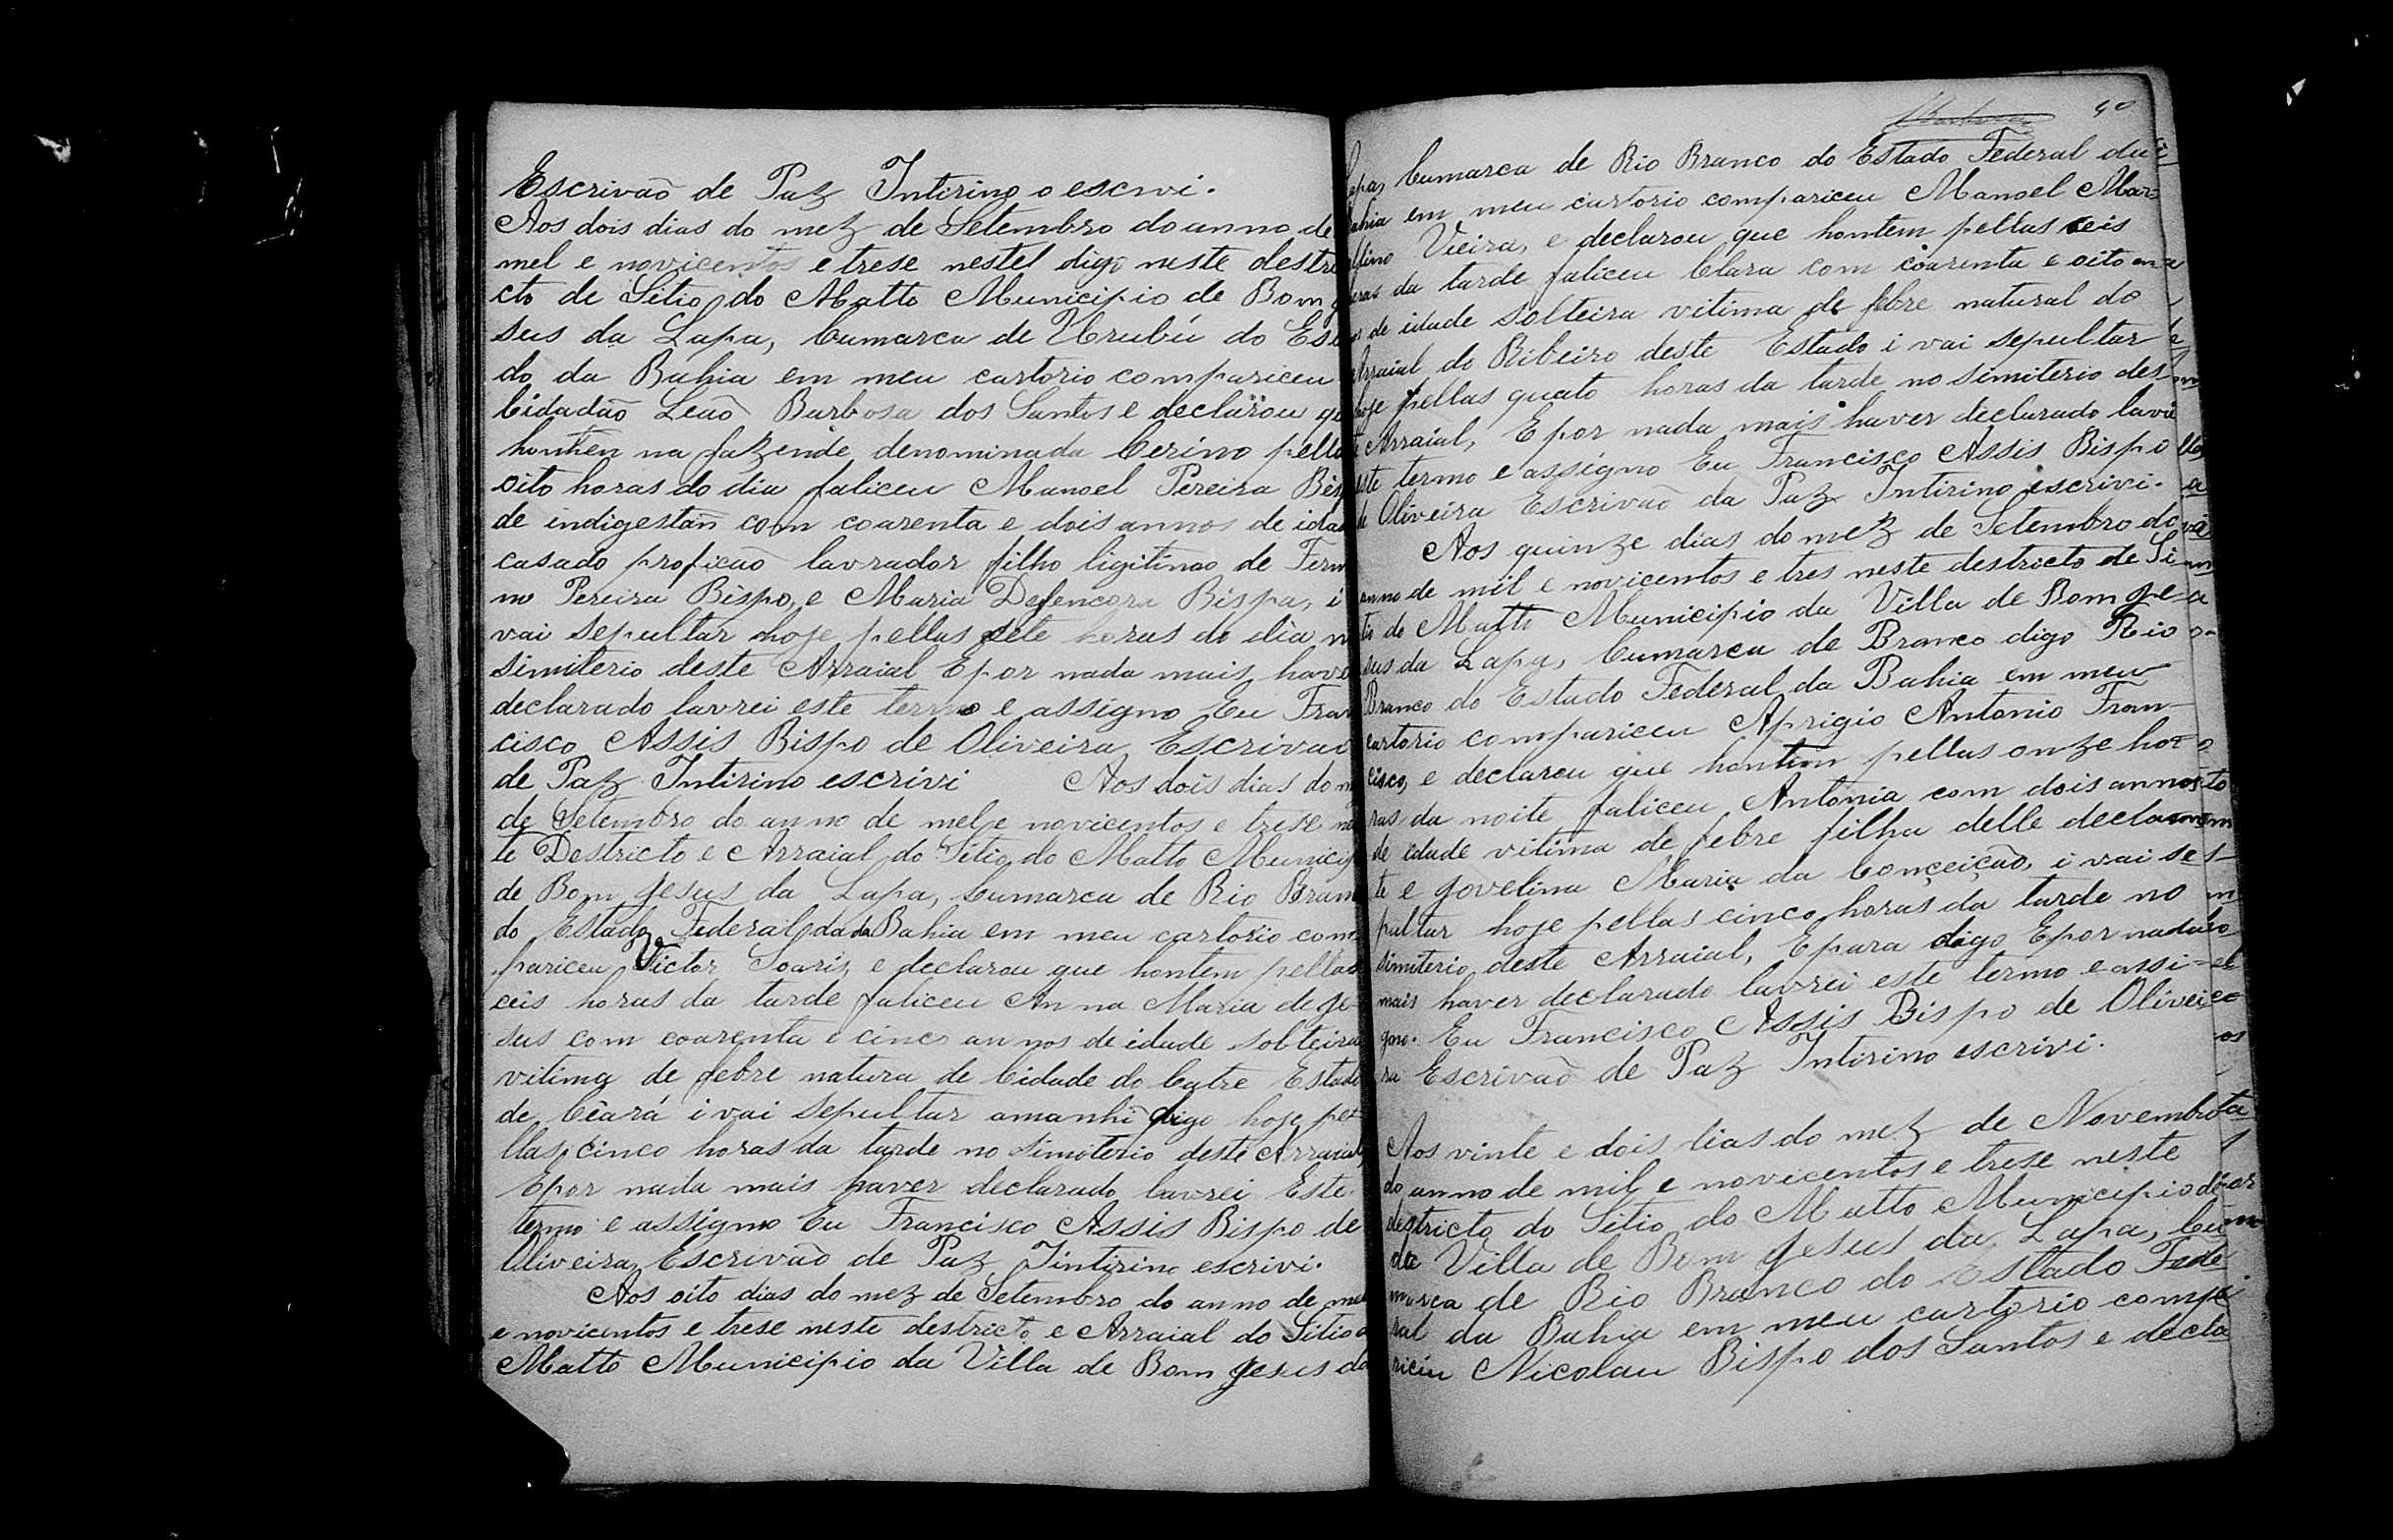 Escrivaõ de Paz Intirino o escrvi.
Aos dois dias do mez de Setembro do anno de
mel e novicentos e trese nestel digo neste destri
cto de Sitio do Matto Municipio de Bom
sus da Lapa, Cumarca de Urubú do Es
do da Bahia em meu cartorio compariceu
Cidadaõ Leaõ Barbosa dos Santos e declarou
honten na fazende denominada Cerino pella
oito horas do dia faliceu Manoel Pereira Bis
de indigestan com coarenta e dois annos de ida
casado proficaõ lavrador filho ligitimo de Firm
no Pereira Bispo, e Maria Bispa, i
vai sepultar hoje pellas sete horas do dia n
simiterio deste Arraial E por nada mais have
declarado lavrei este termo e assigno Eu Fran
cisco Assis Bispo de Oliveira Escrivaõ
de Paz Intirino escrivi Aos dois dias do m
de Setembro do anno de mel e novicentos e trese
te Destricto e Arraial do Sitio do Matto Municip
de Bom Jesus da Lapa, Cumarca de Rio Bran
do Estado Federal da da Bahia em meu cartorio com
pariceu Victor Soaris e declarou que hontem pellas
ceis horas da tarde faliceu Anna Maria de Je
sus com coarenta e cinco annos de idade solteira
vitima de febre natura de Cidade do Catre Estado
de Ceará i vai sepultar amanhi digo hoje pe
llas cinco horas da tarde no simiterio deste Arraial,
E por nada mais haver declarado lavrei Este
termo e assigno Eu Francisco Assis Bispo de
Oliveira Escrivaõ de Paz Iintirino escrivi.
Aos oito dias do mez de Setembro do anno de mel
e novicentos e trese neste destricto e Arraial do Sitio
Matto Municipio da Villa de Bom Jesus da
40
Lapa, Cumarca de Rio Branco do Estado Federal da
Bahia em meu cartorio compariceu Manoel Mar
Vieira, e declarou que hontem pellas ceis
oras da tarde faliceu Clara com coarenta e oito an
os de idade solteira vitima de febre natural do
Arraial do Ribeiro deste Estado i vai sepultar
hoje pellas quato horas da tarde no simiterio des
te Arraial, E por nada mais haver declarado lavri
este termo e assigno Eu Francisco Assis Bispo
de Oliveira Escrivaõ da Paz Intirino iscrivi.
Aos quinze dias do mez de Setembro do
anno de mil e novicentos e tres neste destricto de Si
tio do Matto Municipio da Villa de Bom Je
sus da Lapa, Cumarca de Branco digo Rio
Branco do Estado Federal da Bahia em meu
cartorio compariceu Aprigio Antonio Fran-
cisco, e declarou que hontem pellas onze ho-
ras da noite faliceu Antonia com dois annos
de idade vitima de febre filha delle declaran
te e Jovelina Maria da Conçeiçaõ, i vai se
pultar hoje pellas cinco horas da tarde no
simiterio deste Arraial, E para digo E por nada
mais haver declarado lavrei este termo e assi-
gno. Eu Francisco Assis Bispo de Olivei
ra Escrivaõ de Paz Intirino escrivi.
Aos vinte e dois dias do mez de Novembro
do anno de mil e novicentos e trese neste
destricto do Sitio do Matto Municipio
da Villa de Bom Jesus da Lapa, Cu
marca de Rio Branco do Estado Fede
ral da Bahia em meu cartorio compa
riceu Nicolau Bispo dos Santos e decla